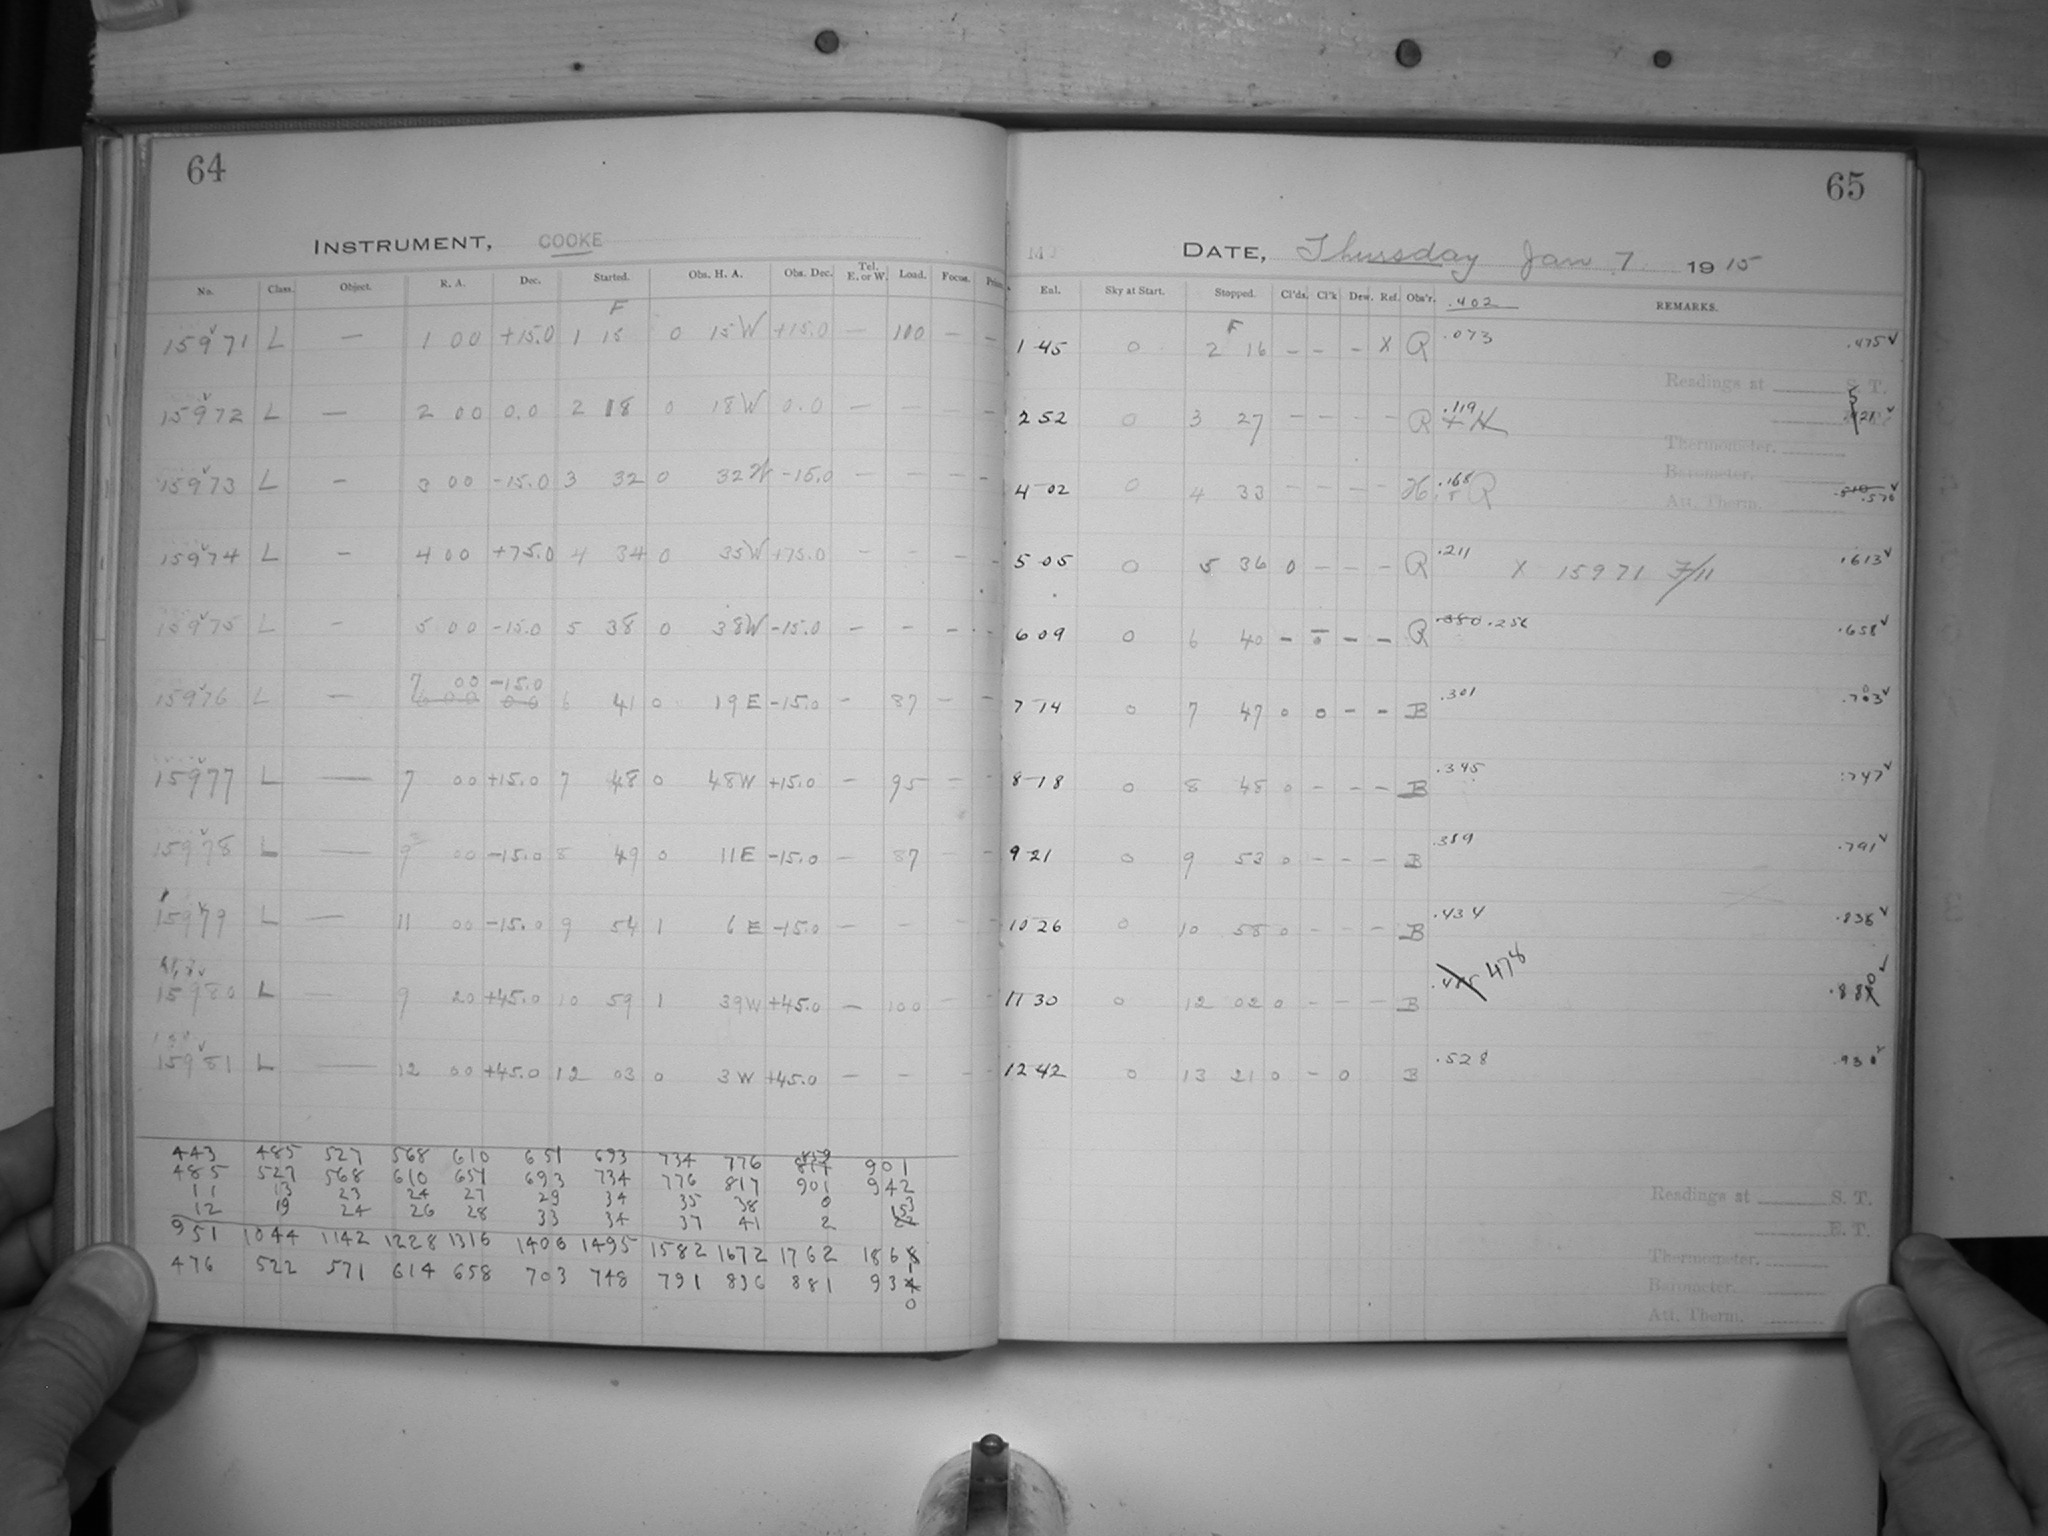 64
INSTRUMENT, COOKE
No. Class. Object. R. A. Dec. Started. Obs. H. A. Obs. Dec. Tel. E. or W. Load. Focus.
F
15971 L — 1 00 +15.0 1 15 0 15 W +15.0 — 100 — —
15972 L — 2 00 0.0 2 18 0 18 W 0.0 — — — —
15973 L — 3 00 -15.0 3 32 0 32 W -15.0 — — — —
15974 L — 4 00 +75.0 4 34 0 35 W +75.0 — — — —
15975 L — 5 00 -15.0 5 38 0 38 W -15.0 — — — —
7 00 -15.0
15976 L — 6 00 0 0 6 41 0 19 E -15.0 — 87 — —
15977 L — 7 00 +15.0 7 48 0 48 W +15.0 — 95 — —
15978 L — 9 00 -15.0 8 49 0 11 E -15.0 — 87 — —
15979 L — 11 00 -15.0 9 54 1 6 E -15.0 — — — —
15980 L — 9 20 +45.0 10 59 1 39 W +45.0 — 100 — —
15981 L — 12 00 +45.0 12 03 0 3 W +45.0 — — — —
443 485 527 568 610 651 693 734 776 859 901
485 527 568 610 651 693 734 776 817 901 942
11 13 23 24 27 29 34 35 38 0 153
12 19 24 26 28 33 34 37 41 2
951 1044 1142 1228 1316 1406 1495 1582 1672 1762 1868
476 522 571 614 658 703 748 791 836 881 934
0
65
DATE, Thursday Jan 7 1915
Ex1. Sky at Start. Stopped. Cl'ds. Cl'k Dew. Ref. Obs'r. .402 REMARKS.
F
1 45 0 2 16 — — — X R .073 .475 ✓
Readings at S. T.
2 52 0 3 27 — — — — R + H .119 .521 ✓
Thermometer.
Barometer.
4 02 0 4 33 — — — — H + R .168 .570 ✓
Att. Therm.
5 05 0 5 36 0 — — — R .211 X 15971 F/11 .613 ✓
6 09 0 6 40 — — — — R .256 .658 ✓
7 14 0 7 47 0 0 — — B .301 .703 ✓
8 18 0 8 48 0 — — — B .345 .747 ✓
9 21 0 9 53 0 — — — B .389 .791 ✓
10 26 0 10 58 0 — — — B .434 .836 ✓
11 30 0 12 02 0 — — — B 478 .880 ✓
12 42 0 13 21 0 — 0 B .528 .930 ✓
Readings at S. T.
E. T.
Thermometer.
Barometer.
Att. Therm.